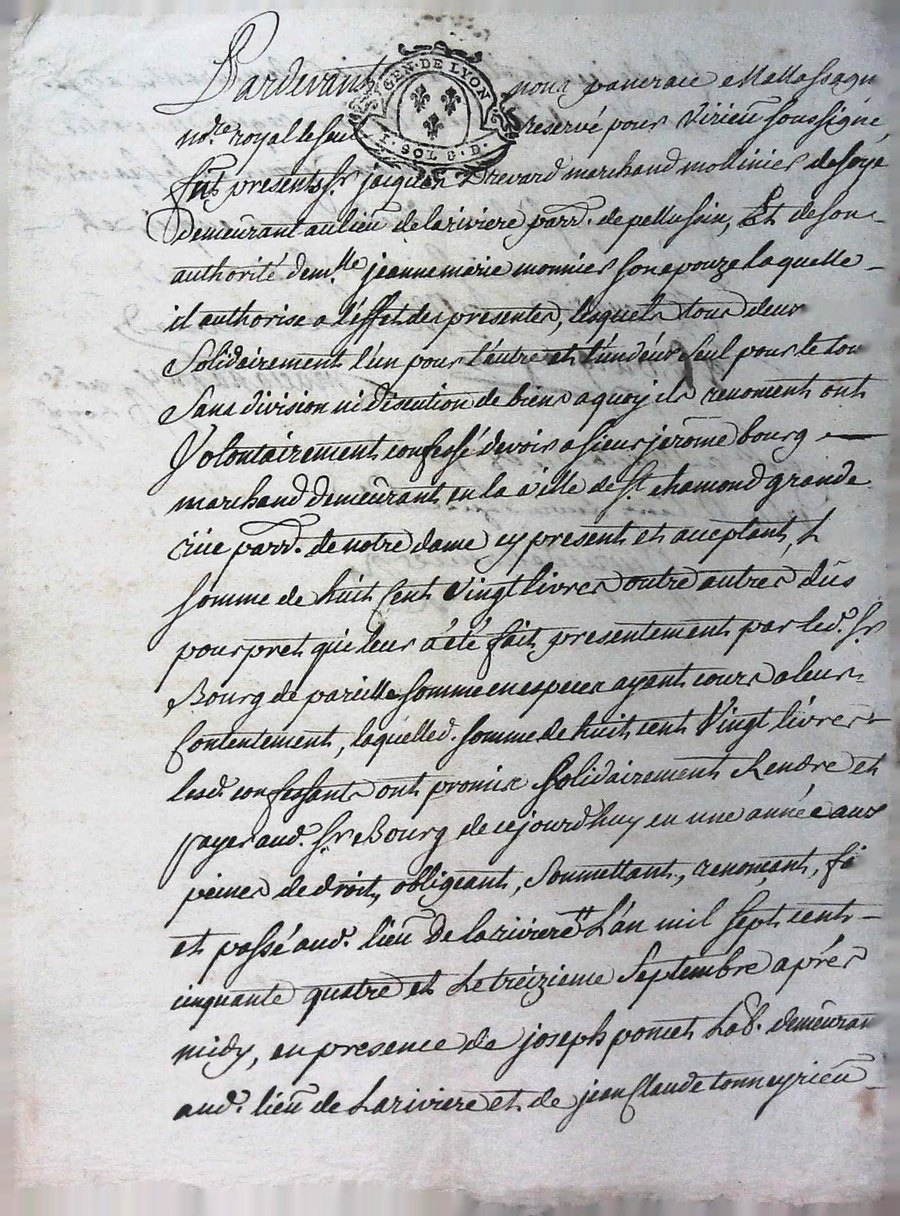 GEN. DE LYON
SOL 8. D.
Pardevant nous panerace
no.re royal le seul reservé pour virieu soussigné,
fut presents Sr jacques Drevard marchand molinier de soye
Demeurant au lieu de lariviere parr.e de pellussin, Et de son
authorité dem.lle jeanne marie monnier son epouze laquelle
il authorise a l'éffet des presentes, lesquels tous deux
Solidairement l'un pour l'autre et l'un d'eux seul pour le tou
Sans division ni discution de biens a quoy ils renoncent ont
Volontairement confessé devoir a sieur jerôme bourg
marchand demeurant en la ville de St chamond grande
rüe parr.e de notre dame cy present et acceptant, L
Somme de huit Cent Vingt livres outre autres dûs
pour pret qui leur a été fait presentement par led.t Sr
Bourg de pareille somme en especes ayant cours a leur
Contentement, laquelle d. somme de huit cent Vingt livres
lesd. confessants ont promis Solidairement Rendre et
payer aud.t Sr Bourg de cejourdhuy en une année aux
peines de droit, obligeant, Soumettant, renonçant, fa
et passé aud.t lieu De lariviere L'an mil sept cent
cinquante quatre et Le treizieme Septembre aprés
midy, en presence de joseph pomet Lab.r demeuran
aud.t lieu de Lariviere et de jean Claude tonneyrieu